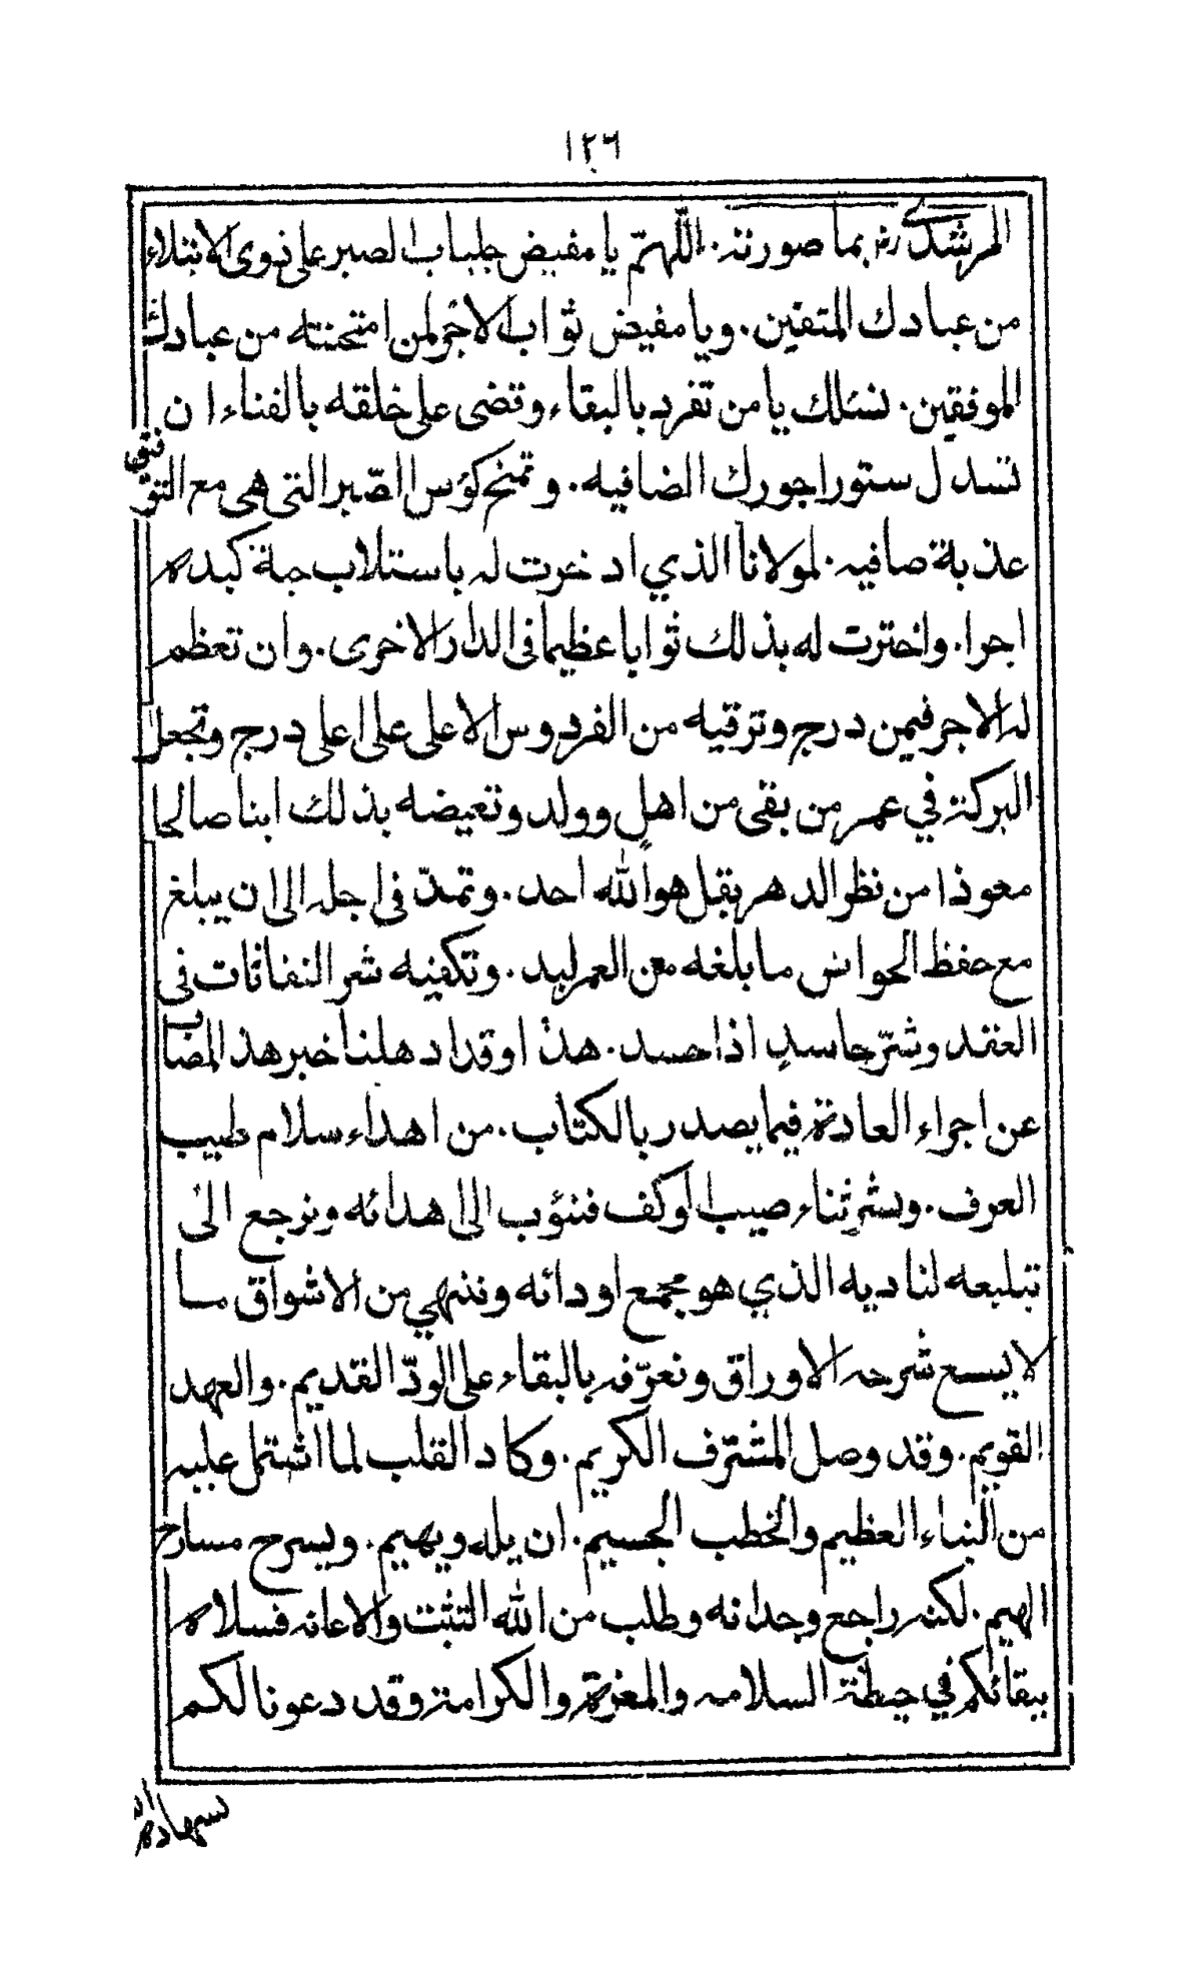 ١٢٦
المرشدي بما صورته. اللهمّ يا مفيض جلباب الصبر على ذوى الابتلاء
من عبادك المتقين. ويا مفيض ثواب الاجر لمن امتحنته من عبادك
الموفقين. نسئلك يا من تفرد بالبقاء وقضى على خلقه بالفناء ان
تسدل ستور اجورك الضافيه. وتمنح كؤس الصّبر التى هى مع
عذبة صافيه. لمولانا الذي ادخرت له باستلاب كبده
اجرا. واخترت له بذلك ثوابا عظيما فى الدار الاخرى. وان تعظم
له الاجر فيمن درج وترقيه من الفردوس الاعلى على اعلى درج وتجعل
البركة في عمر من بقى من اهل وولد وتعيضه بذلك ابنا صالحا
معوذا من نظر الدهر بقل هو الله احد. وتمدّ فى اجله الى ان يبلغ
مع حفظ الحواس ما بلغه من العمر لبد. وتكفيه شر النفاثات فى
العقد وشرّ حاسدٍ اذا حسد. هذا وقد ادهلنا خبر هذ المصاب
عن اجراء العادة فيما يصدر بالكتاب. من اهداء سلام طيب
العرف. وبشر ثناء صيب الوكف فنئوب الى اهدائه ونرجع الى
تبليغه لناديه الذي هو مجمع اودائه وننهي من الاشواق ما
لا يسع شرحه الاوراق ونعرّفه بالبقاء على الودّ القديم. والعهد
القويم. وقد وصل المشرّف الكريم. وكاد القلب لما اشتمل عليه
من النباء العظيم والخطب الجسيم. ان يله ويهيم. ويسرح مسارح
الهيم. لكنه راجع وجدانه وطلب من الله التثبت والاعانه فسلاه
ببقائكم في حيطة السلامه والمعزة والكرامة وقد دعونا لكم